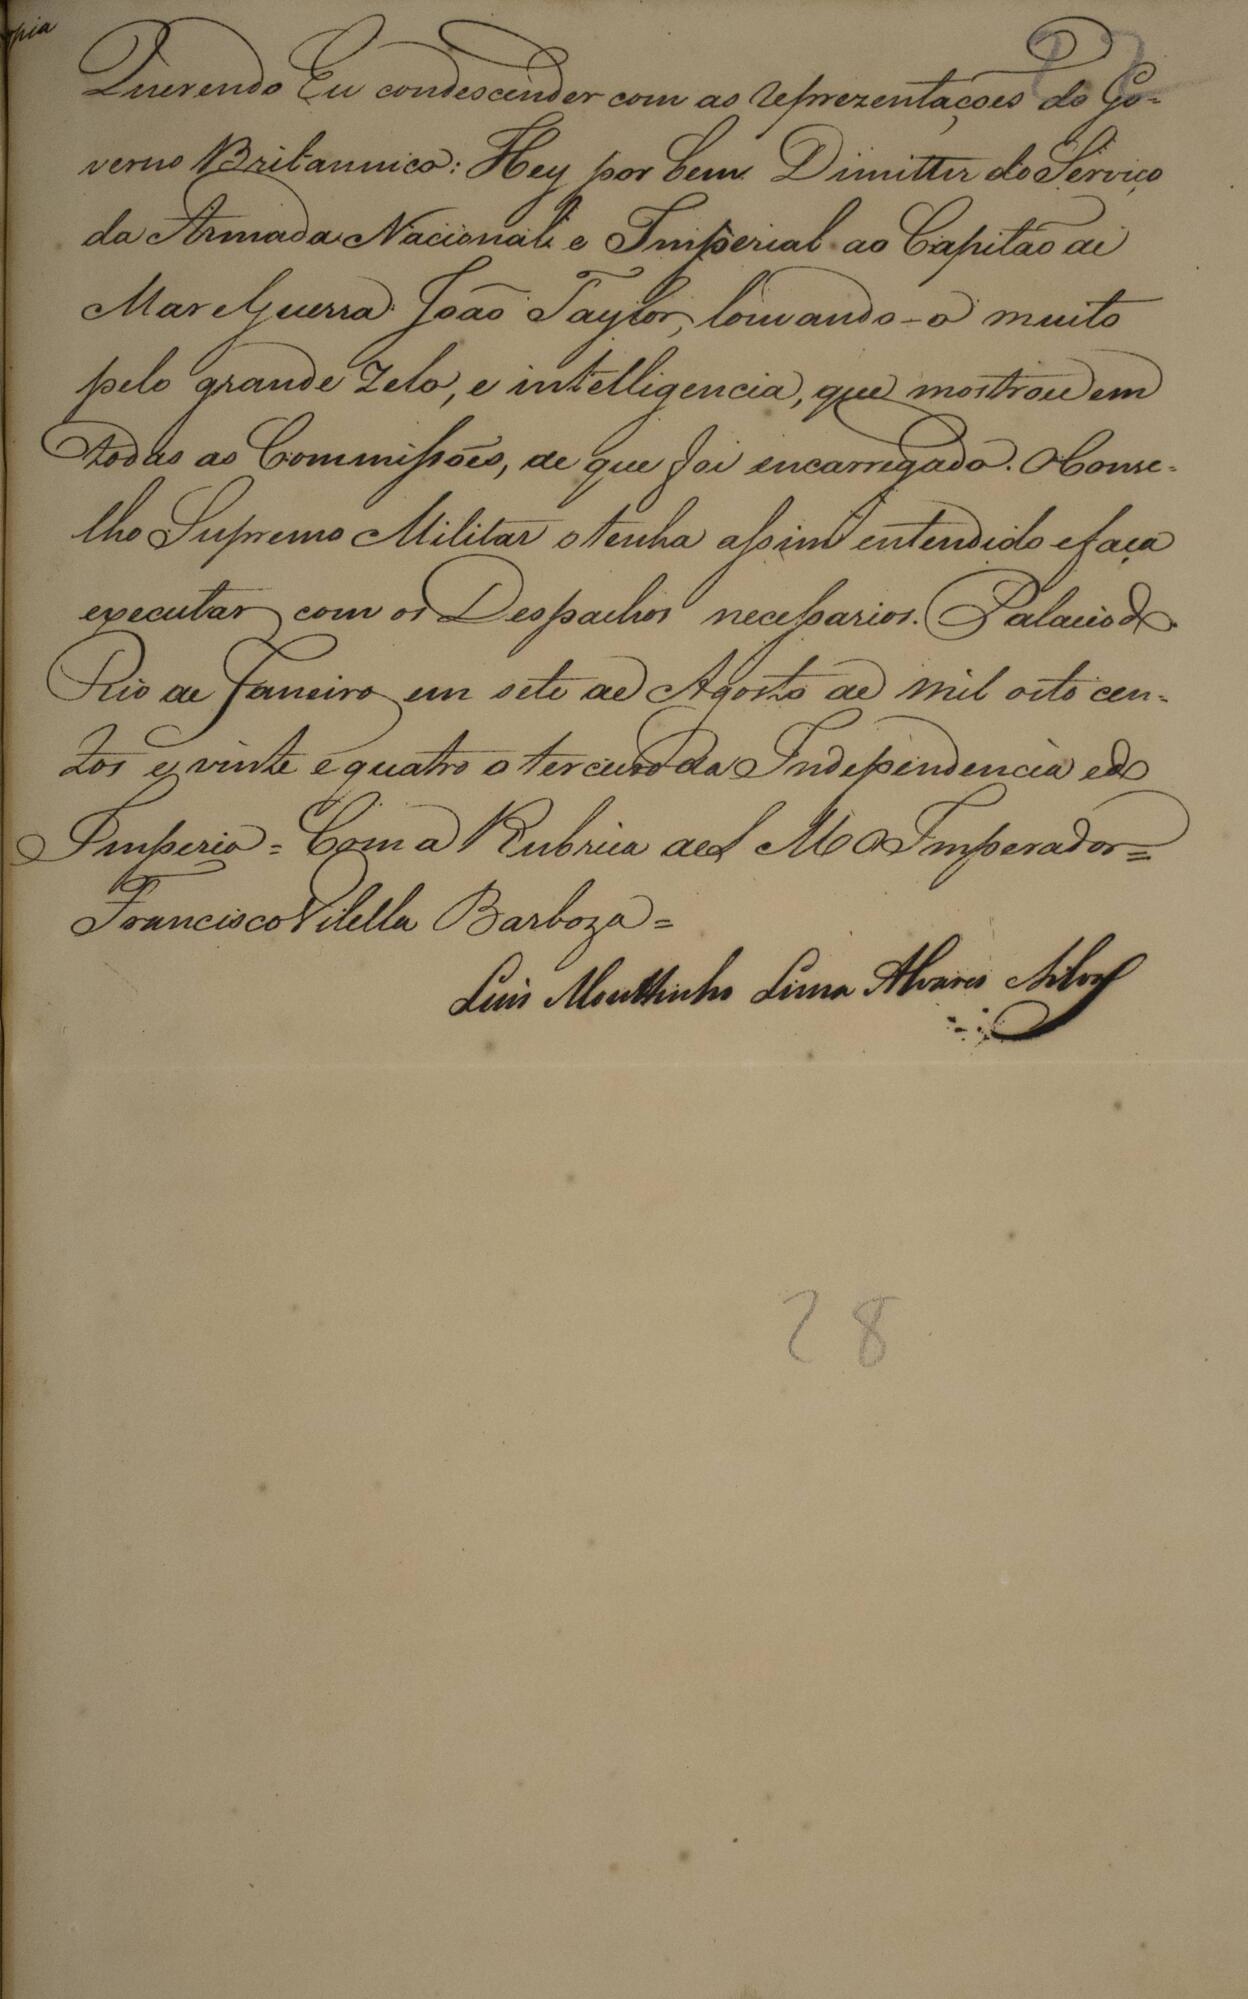 Querendo Eu condescender com as reprezentações do Go-
verno Britannico: Hey por bem Dimittir do Serviço
da Armada Nacional e Imperial ao Capitão de
Mar e Guerra João Taylor, louvando-o muito
pelo grande Zelo, e intelligencia, que mostrou em
todas as Commissões, de que foi encarregado. O Conse-
lho Supremo Militar o tenha assim entendido e faça
executar com os Despachos necessarios. Palacio do
Rio de Janeiro em sete de Agosto de mil oito cen-
tos e vinte e quatro o terceiro da Independencia e do
Imperio = Com a Rubrica de S M O Imperador =
Francisco Vilella Barboza =
Luis Moutinho Lima Alvares Silva
28